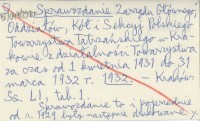 Sprawozdanie Zarządu Głównego,
Oddziałów, Kół i Sekcyj Polskiego
Towarzystwa Tatrzańskiego w Kra-
kowie z działalności Towarzystwa
za czas od 1 kwietnia 1931 do 31
marca 1932 r. 1932. — Kraków
Ss. LI, tab. 1.
Sprawozdanie to i poprzednie
od r. 1929 było następnie drukowane